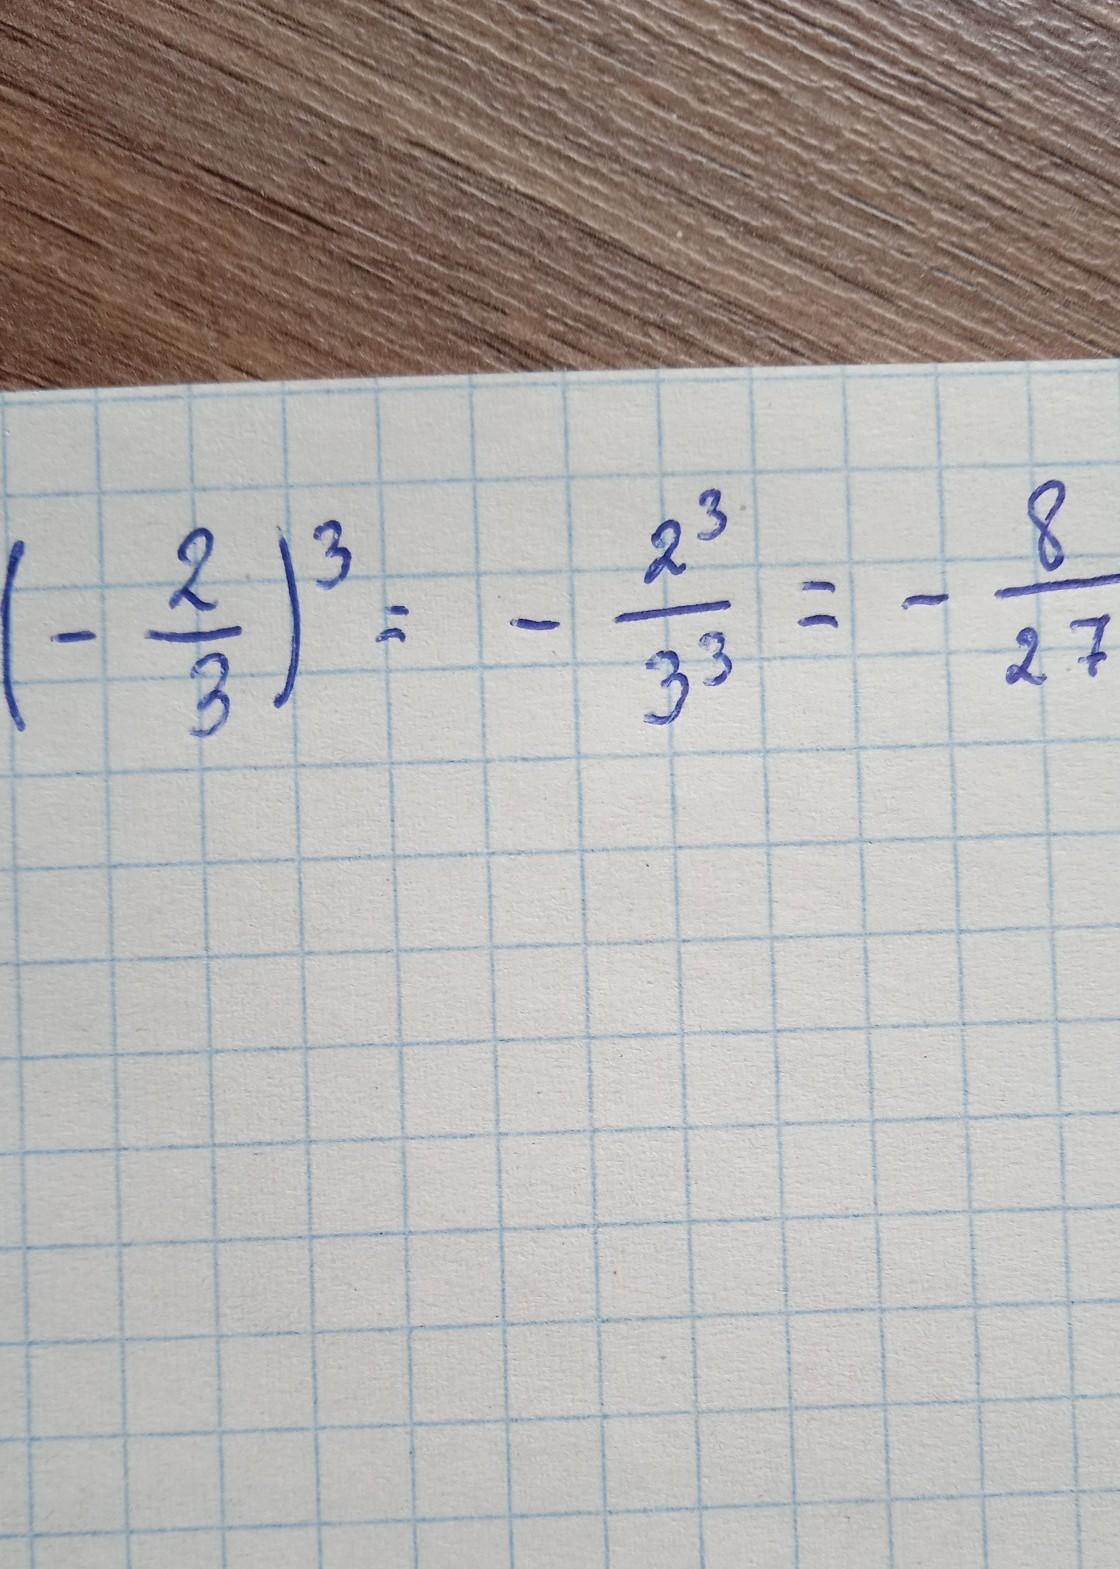 (-2/3)³ = -2³/3³ = -8/27